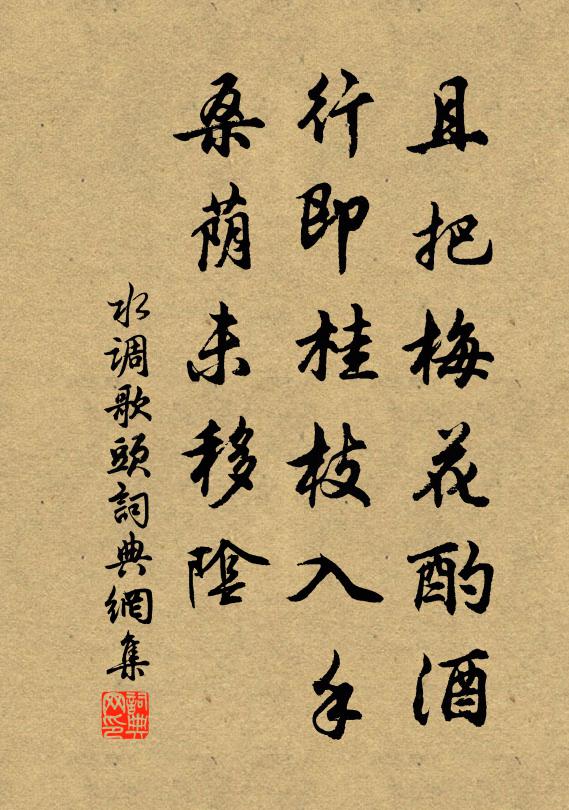 且把梅花酌酒
行即桂枝入手
桑荫未移陰
水调歌頭詞典網集
詞典
网印